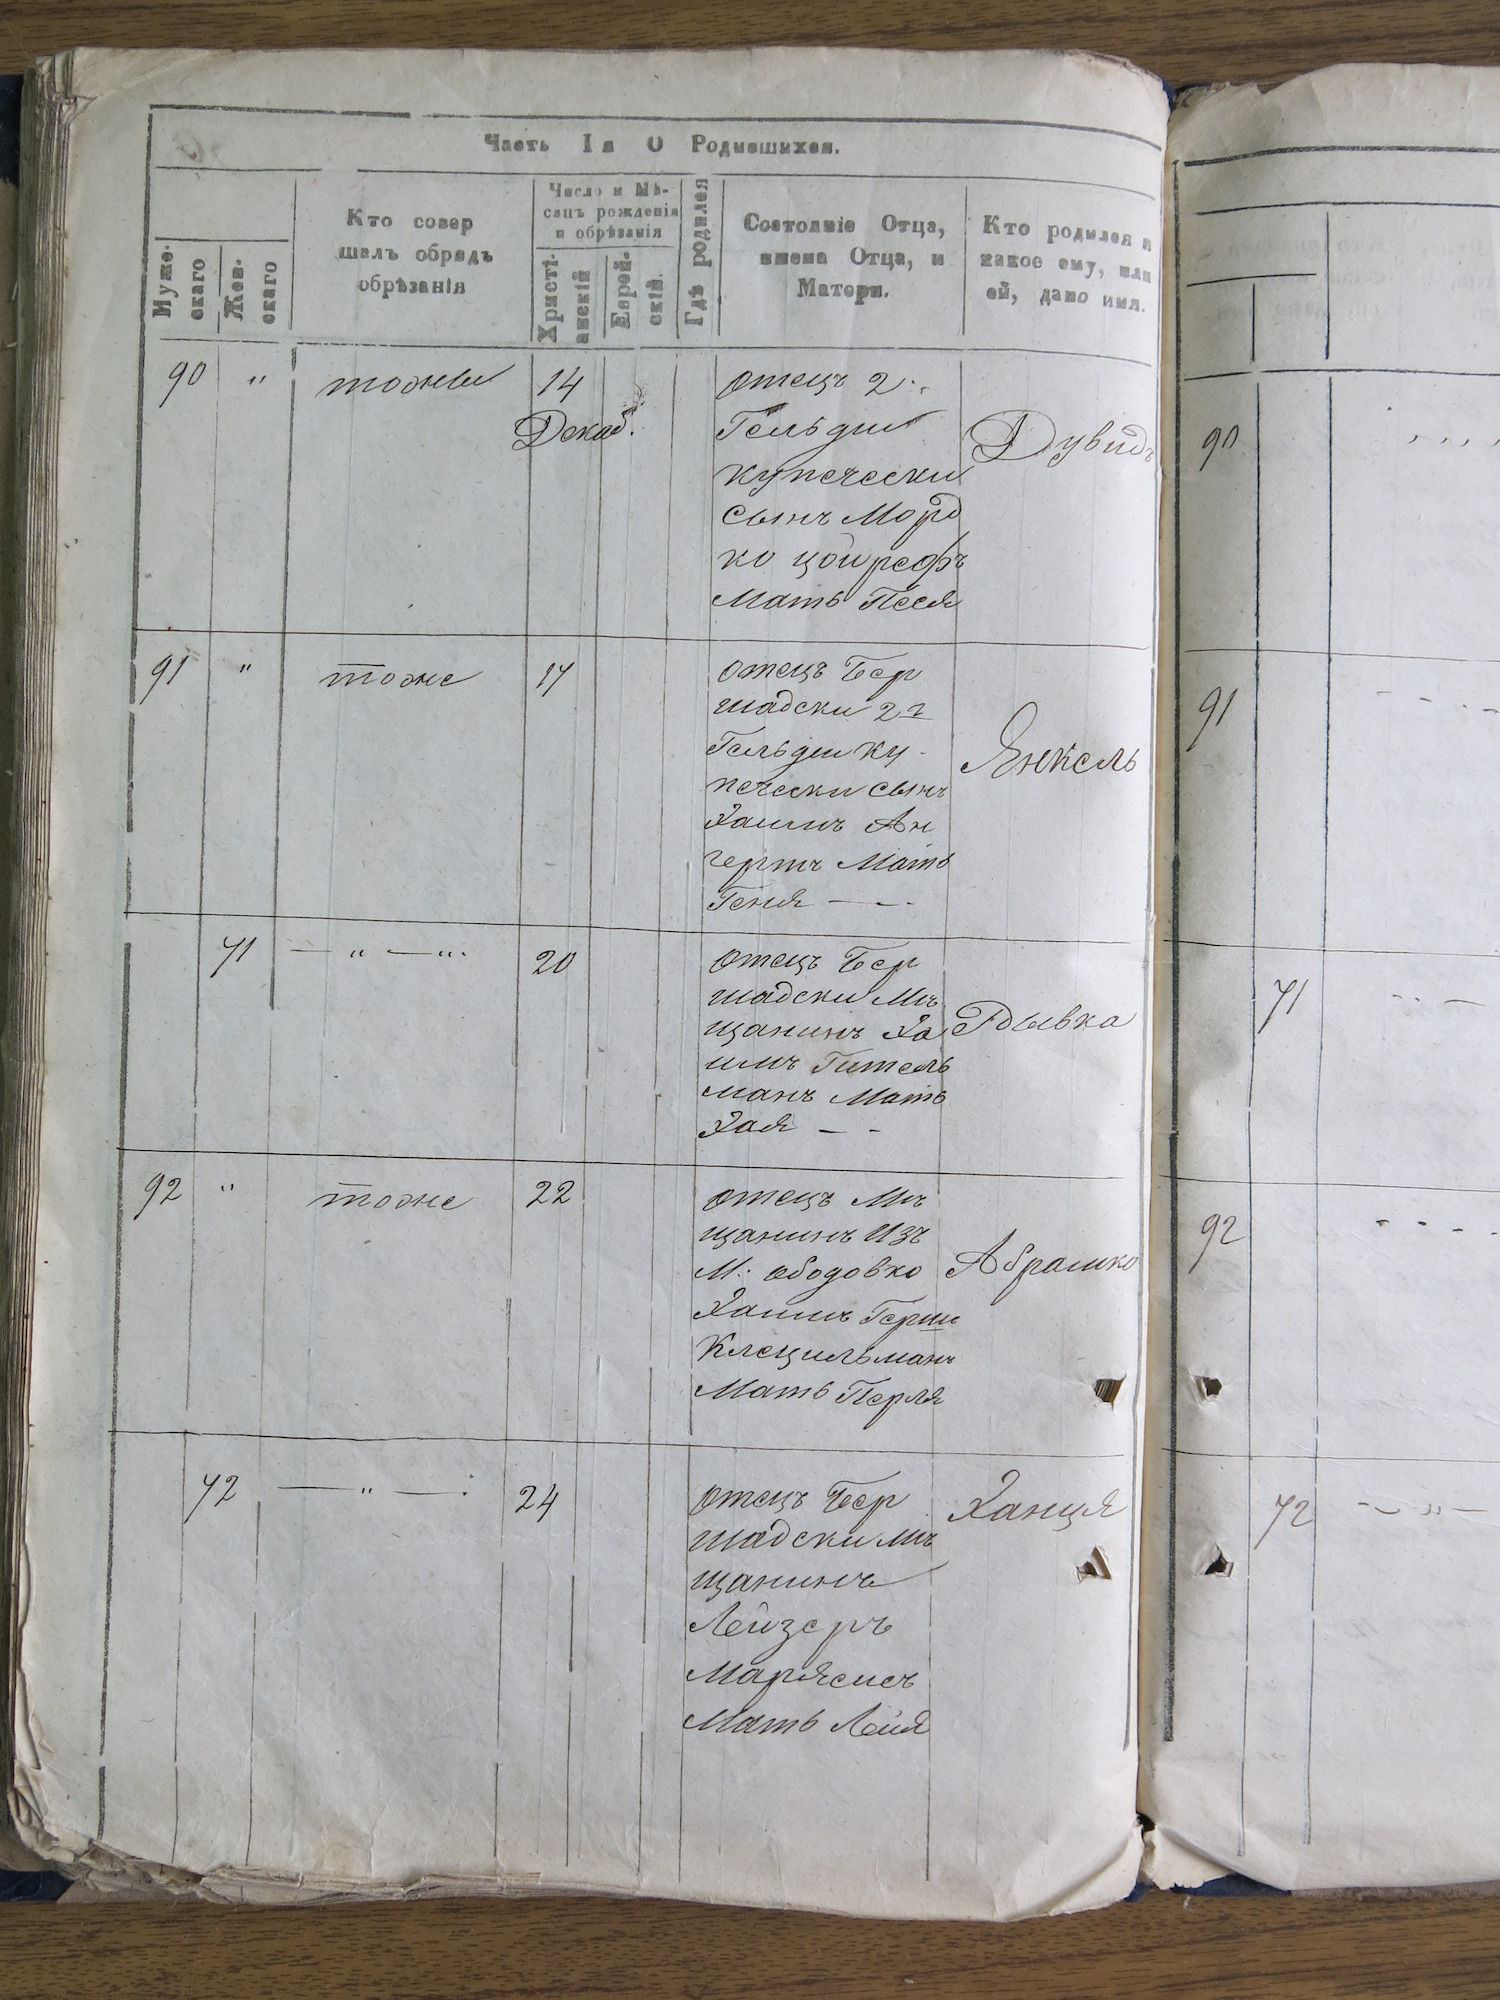 Часть Iя О Родившихся.
Муже-
скаго
Жен-
скаго
Кто совер
шалъ обрядъ
обрѣзанія
Число и Мѣ-
сяцъ рожденія
и обрѣзанія
Христі-
анскій
Еврей-
скій.
Гдѣ родился
Состояніе Отца,
имена Отца, и
Матери.
Кто родился и
какое ему, или
ей, дано имя.
90 " тоже 14
Декаб.
отецъ 2.
Гельдии
купчески
сынъ Морд
ко Цойрефъ
Мать Песя
Дувидъ
91 " тоже 17
отецъ Бер
шадски 2й
Гельдии ку-
печески сынъ
Хаимъ Ан
гертъ Мать
Геня — - .
Янкель
71 — " — " . 20
отецъ Бер
шадски Мѣ
щанинъ Ха
имъ Гитель
манъ Мать
Хая — -
Рывка
92 " тоже 22
отецъ Мѣ
щанинъ изъ
М. Ободовко
Хаимъ Герш
Клецильманъ
Мать Перля
Абрашко
72 — " — . 24
отецъ Бер
шадски мѣ
щанинъ
Лейзеръ
Марясисъ
Мать Лейя
Ханця
90
91
71
92
72